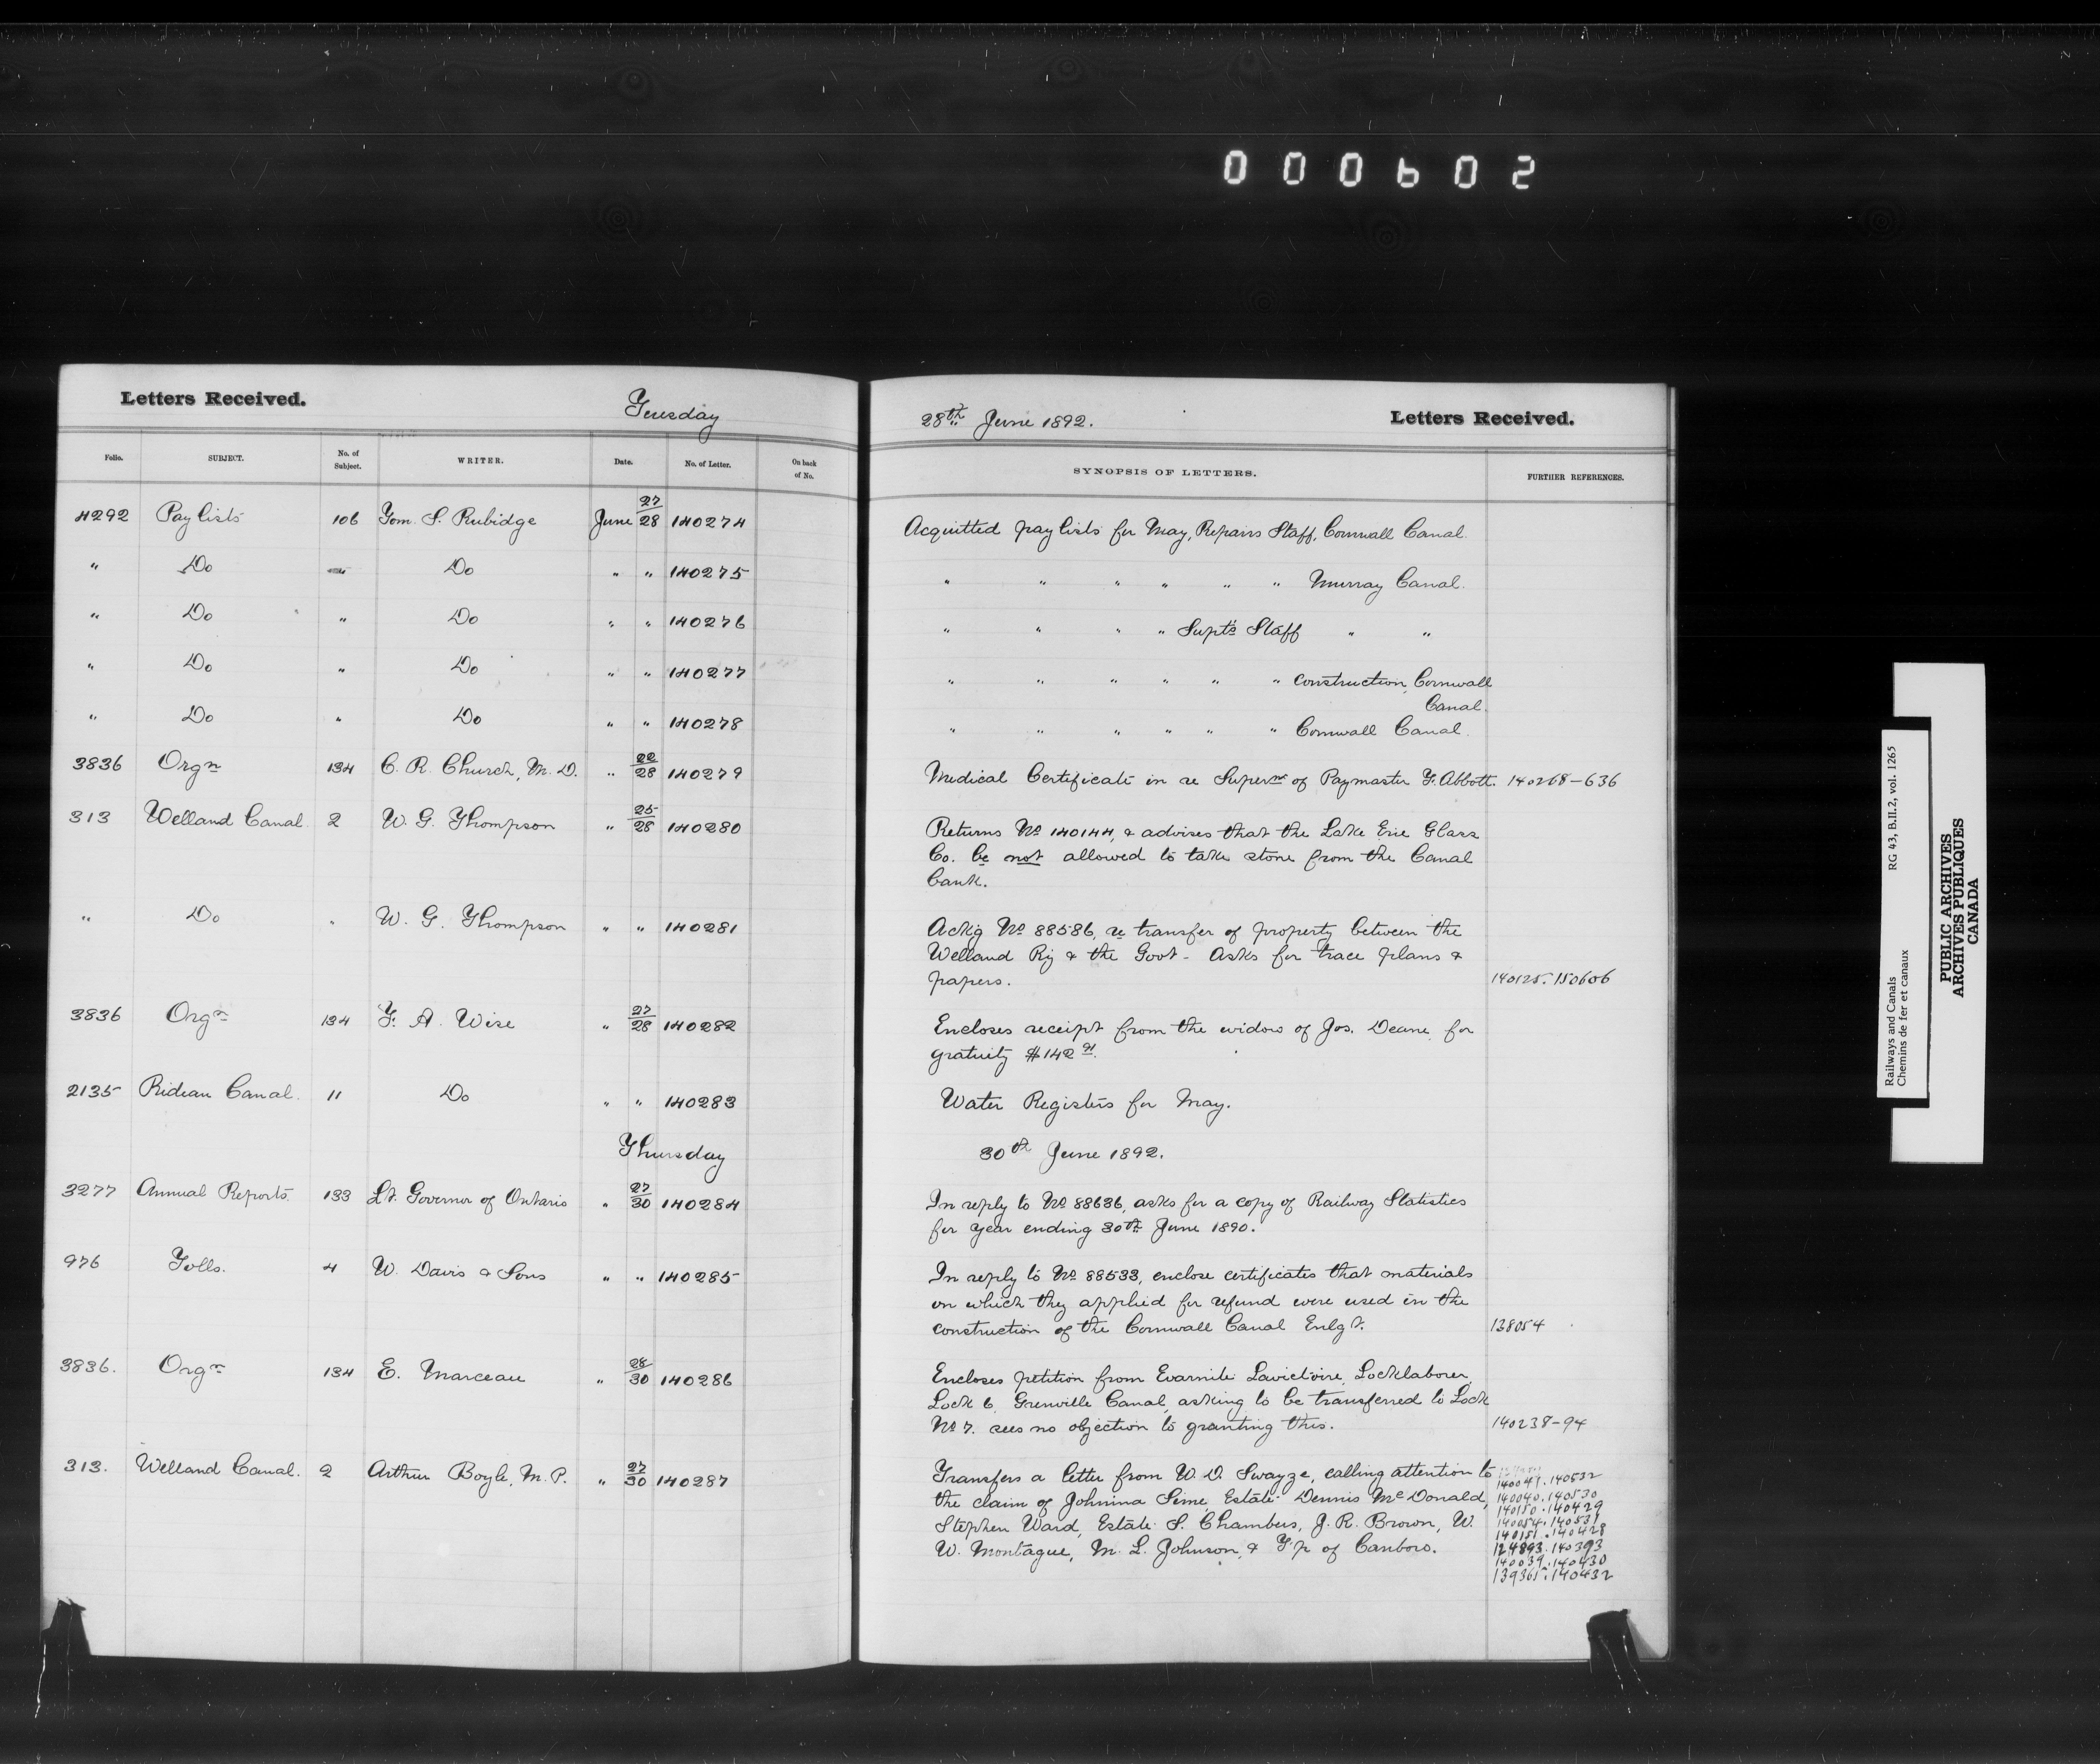 000602
Letters Received.
Tuesday
28th June 1892.
Letters Received.
Folio. SUBJECT. No. of Subject. WRITER. Date. No. of Letter. On back of No.
SYNOPSIS OF LETTERS. FURTHER REFERENCES.
4292 Pay lists 106 Tom. S. Rubidge June 27/28 140274 Acquitted pay lists for May, Repairs Staff, Cornwall Canal.
" Do " Do " " 140275 " " " " " " Murray Canal.
" Do " Do " " 140276 " " " " Supt's Staff " "
" Do " Do " " 140277 " " " " " " construction, Cornwall
Canal.
" Do " Do " " 140278 " " " " " " Cornwall Canal.
3836 Orgn 134 C. R. Church, M. D. " 22/28 140279 Medical Certificate in re Superan of Paymaster F. Abbott. 140268-636
313 Welland Canal. 2 W. G. Thompson " 25/28 140280 Returns No 140144, & advises that the Lake Erie Glass
Co. be not allowed to take stone from the Canal
bank.
" Do " W. G. Thompson " " 140281 Ackg No 88586, re transfer of property between the
Welland Ry & the Govt - Asks for trace plans &
papers. 140125.150606
3836 Orgn 134 F. A. Wise " 27/28 140282 Encloses receipt from the widow of Jos. Deane, for
gratuity $142 91.
2135 Rideau Canal. 11 Do " " 140283 Water Registers for May.
Thursday 30th June 1892.
3277 Annual Reports. 133 Lt. Governor of Ontario " 27/30 140284 In reply to No 88636, asks for a copy of Railway Statistics
for year ending 30th June 1890.
976 Tolls. 4 W. Davis & Sons " " 140285 In reply to No 88533, enclose certificates that materials
on which they applied for refund were used in the
construction of the Cornwall Canal Enlgt. 138054
3836. Orgn 134 E. Marceau " 28/30 140286 Encloses petition from Evarnite Lavictoire, Locklaborer,
Lock 6, Grenville Canal, asking to be transferred to Lock
No 7. sees no objection to granting this. 140238-94
313. Welland Canal. 2 Arthur Boyle, M. P. " 27/30 140287 Transfers a letter from W. D. Swayze, calling attention to
140047.140532
the claim of Johnina Sime, Estate Dennis McDonald, 140040.140530
140150.140429
Stephen Ward, Estate S. Chambers, J. R. Brown, W. 140054.140531
140151.140428
W. Montague, M. L. Johnson, & T'p of Canboro. 124893.140393
140039.140430
139361.140432
Railways and Canals
Chemins de fer et canaux
RG 43, B.II.2, vol. 1265
PUBLIC ARCHIVES
ARCHIVES PUBLIQUES
CANADA